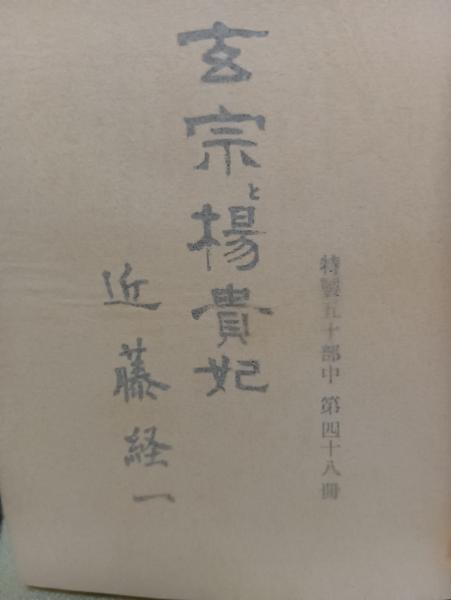 特製五十部中 第四十八冊
玄宗と楊貴妃
近藤経一